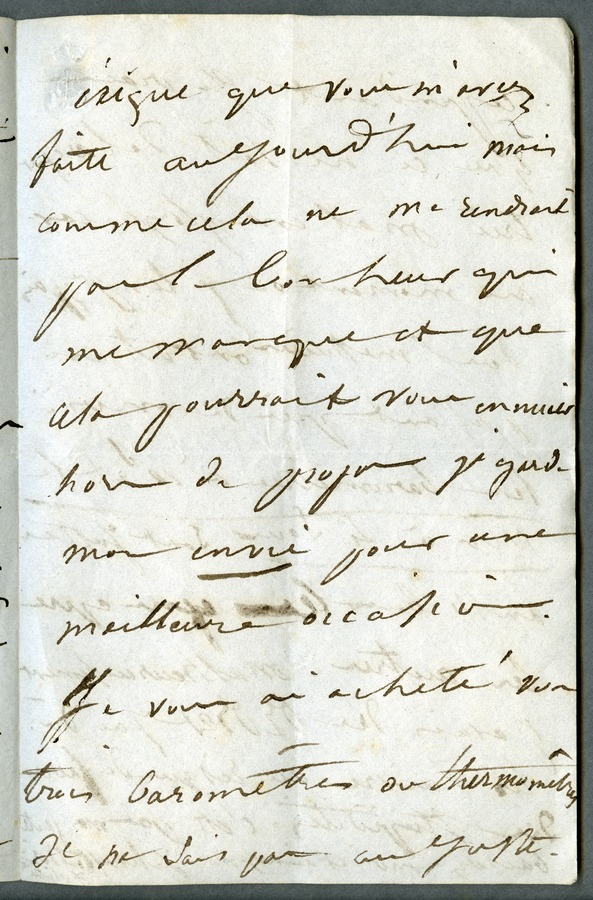 que vous m'avez
faite aujourd'hui mais
comme cela ne me rendrait
pas l bonheur qui
me manque et que
cela pourrait vous ennuier
hors de propos je gard
mon envie pour une
meilleure occasion.
Je vous ai acheté vos
trois baromètres ou thermomètres
Je ne sais pas au juste.